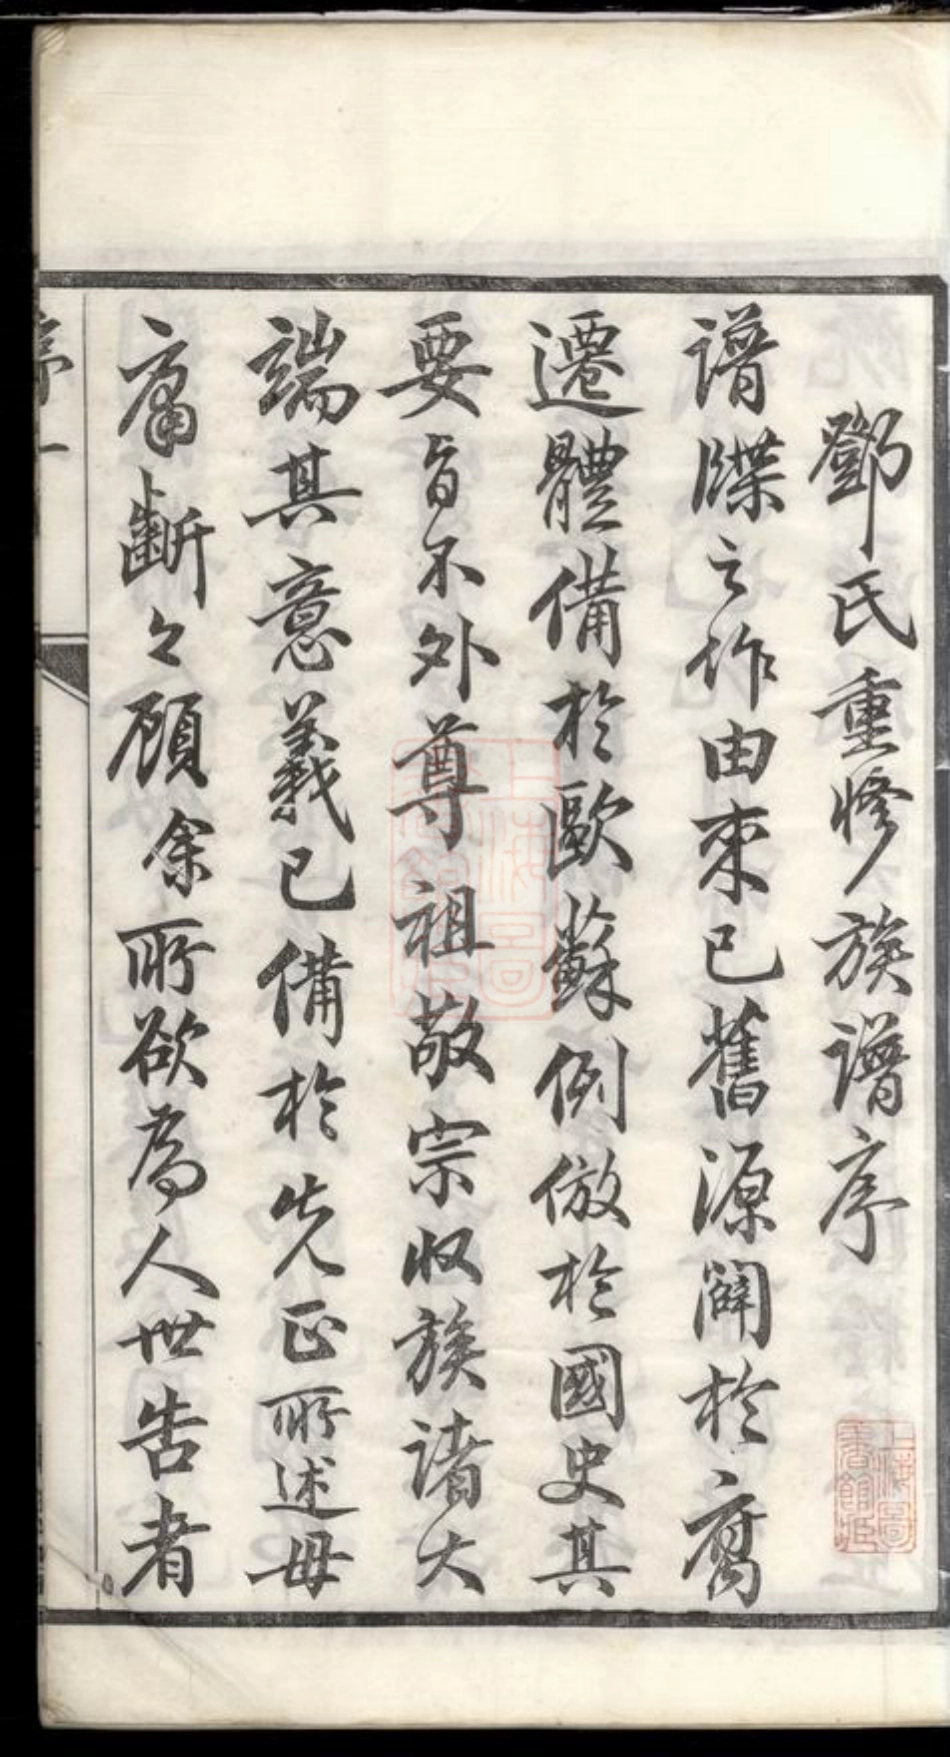 鄧氏重修族譜序
譜牒之作由來已舊源闢於腐
遷體備於歐蘇例倣於國史其
要旨不外尊祖敬宗收族諸大
端其意義已備於先正所述毋
庸斷々顧余所欲為人世告者
序 一
上海圖書館藏